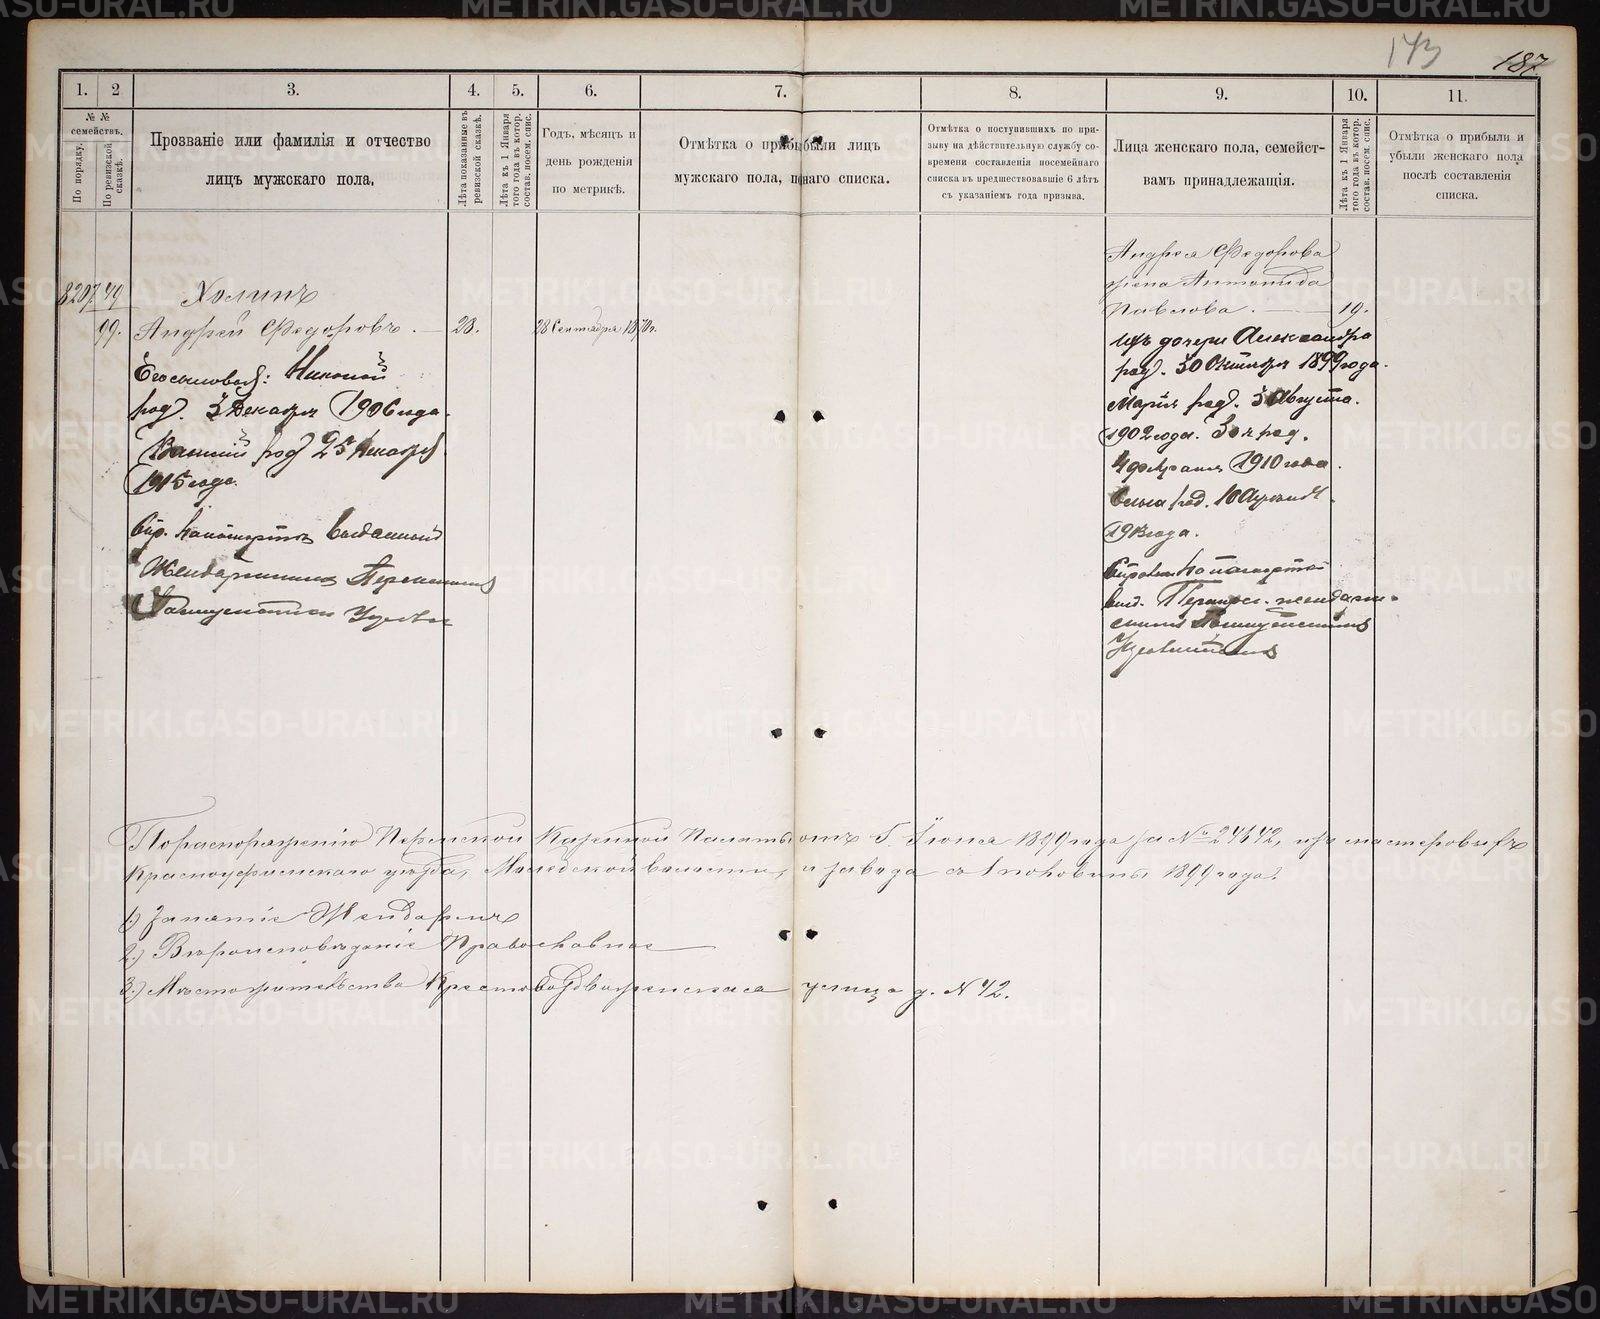 173
187
1.
2
3.
4.
5.
6.
7.
8.
9.
10.
11.
№ №
семействъ.
По порядку.
По ревизской сказкѣ.
Прозваніе или фамилія и отчество
лицъ мужскаго пола.
Лѣта показанные въ
ревизской сказкѣ.
Лѣта къ 1 Января
того года въ котор.
состав. посем. спис.
Годъ, мѣсяцъ и
день рожденія
по метрикѣ.
Отмѣтка о лицъ
мужскаго пола, списка.
Отмѣтка о поступившихъ по при-
зыву на дѣйствительную службу со-
времени составленія посемейнаго
списка въ предшествовавшіе 6 лѣтъ
съ указаніемъ года призыва.
Лица женскаго пола, семейст-
вамъ принадлежащія.
Лѣта къ 1 Января
того года въ котор.
состав. посем. спис.
Отмѣтка о прибыли и
убыли женскаго пола
послѣ составленія
списка.
8207
99.
Холинъ
Андрей Федоровъ. 28. 28 Сентября 1870 г.
Его сыновья: Николай
род. 3 Декабря 1906 года.
Василий род 25 Декабря
1915 года.
Андрея Федорова
жена Антонида
Павлова. 19.
ихъ дочери Александра
род. 30 Октября 1899 года.
Мария род. 3 Августа.
1902 года. Зоя род.
4 февраля 1910 года.
Ольга род. 10
1913 года.
По распоряженію Пермской Казенной Палаты отъ 5 Іюня 1899 года за № 24642, изъ мастеровыхъ
Красноуфимскаго уѣзда, волости, и завода съ 1 половины 1899 года.
1.) Занятіе Жендармъ
2.) Вѣроисповѣданіе Православное
3.) Мѣстожительства Крестовоздвиженская улица д. N 42.
METRIKI.GASO-URAL.RU